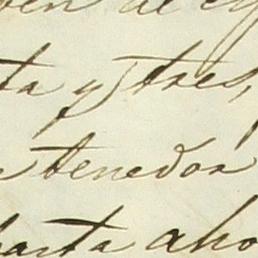 ben de
ta y tres,
tenedor
hasta aho